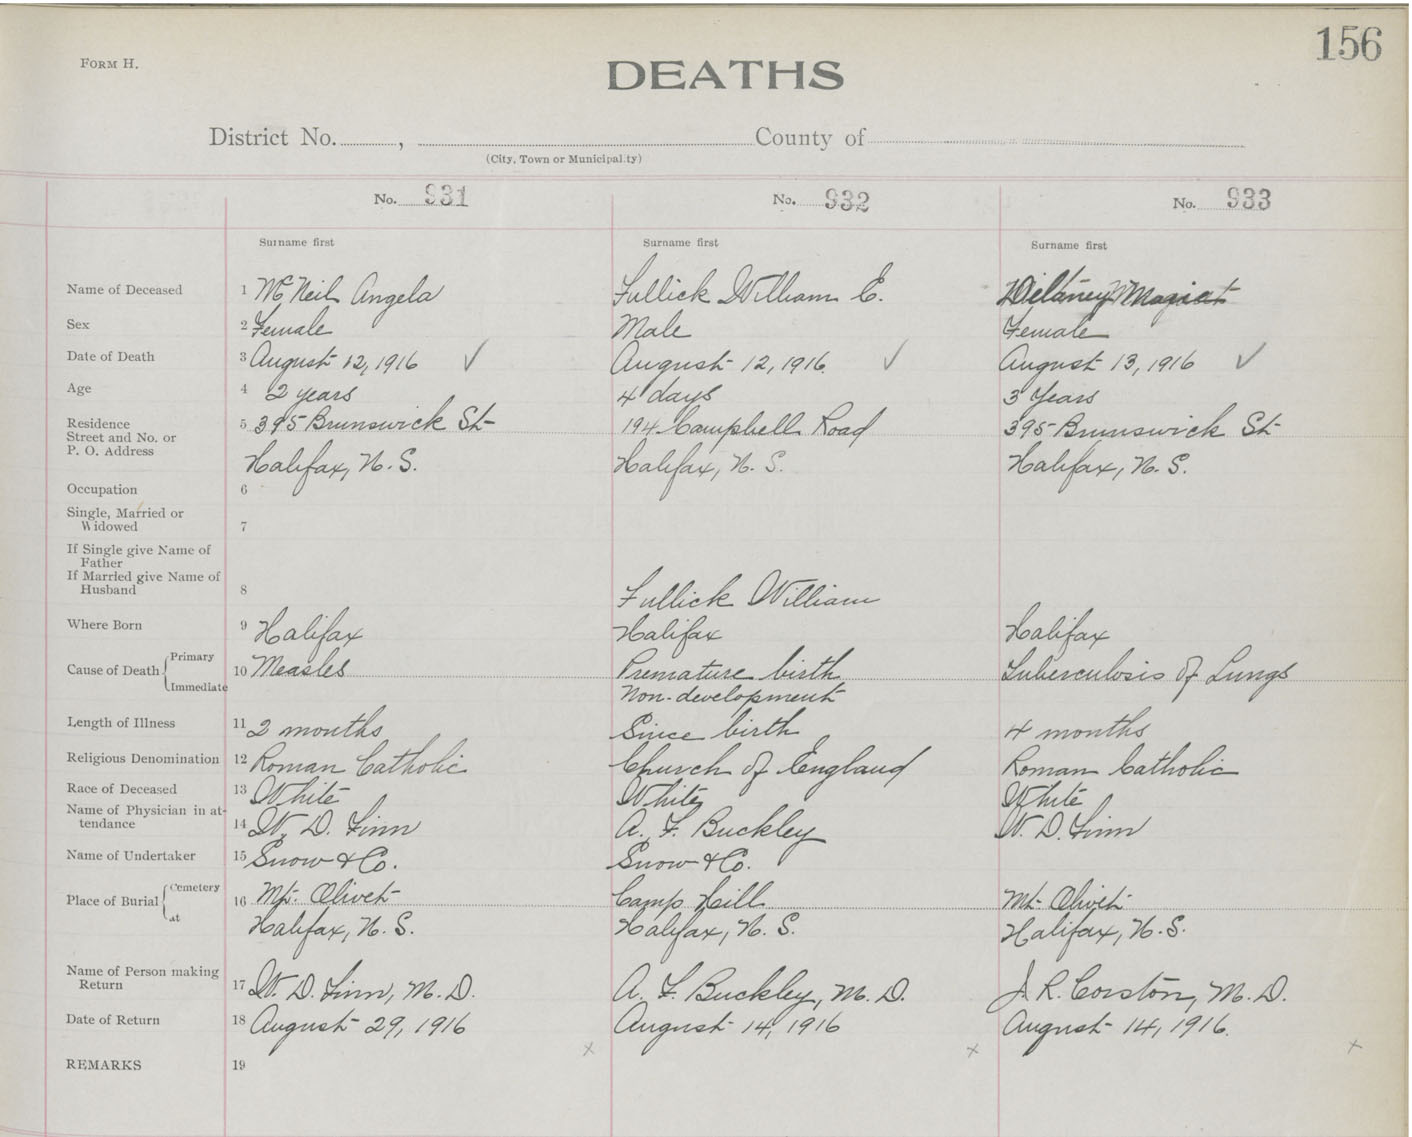 156
FORM H.
DEATHS
District No. , County of
(City, Town or Municipality)
No. 931 No. 932 No. 933
Surname first Surname first Surname first
Name of Deceased 1 McNeil Angela Fullick William E. Delaney
Sex 2 Female Male Female
Date of Death 3 August 12, 1916 ✓ August 12, 1916. ✓ August 13, 1916 ✓
Age 4 2 years 4 days 3 Years
Residence 5 395 Brunswick St 194 Campbell Road 395 Brunswick St
Street and No. or
P. O. Address Halifax, N. S. Halifax, N. S. Halifax, N. S.
Occupation 6
Single, Married or
Widowed 7
If Single give Name of
Father
If Married give Name of
Husband 8 Fullick William
Where Born 9 Halifax Halifax Halifax
Cause of Death Primary 10 Measles Premature birth Tuberculosis of Lungs
Immediate Non-development
Length of Illness 11 2 months Since birth 4 months
Religious Denomination 12 Roman Catholic Church of England Roman Catholic
Race of Deceased 13 White White White
Name of Physician in at-
tendance 14 W. D. Finn A. F. Buckley W. D. Finn
Name of Undertaker 15 Snow & Co. Snow & Co.
Place of Burial Cemetery 16 Mt. Olivet Camp Hill Mt Olivet
at Halifax, N. S. Halifax, N. S. Halifax, N. S.
Name of Person making
Return 17 W. D. Finn, M. D. A. F. Buckley, M. D. J. R. Corston, M. D.
Date of Return 18 August 29, 1916 August 14, 1916 August 14, 1916.
x x x
REMARKS 19